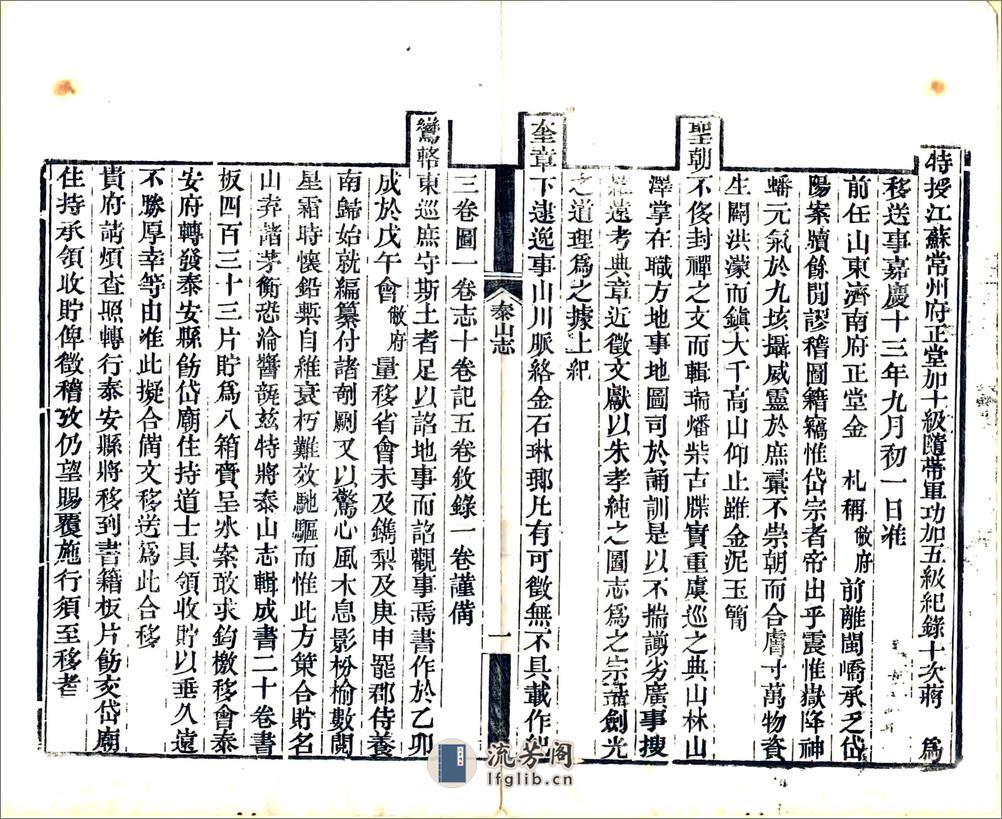 特授江蘇常州府正堂加十級隨帶軍功加五級紀錄十次蔣　為
移送事嘉慶十三年九月初一日准
前任山東濟南府正堂金　札稱敝府前離閩嶠承乏岱
陽案牘餘閒謬稽圖籍竊惟岱宗者帝出乎震惟嶽降神
蟠元氣於九垓攝威靈於庶彙不崇朝而合膚寸萬物資
生闢洪濛而鎮大千高山仰止雖金泥玉簡
聖朝不侈封禪之文而輯瑞燔柴古牒實重虞巡之典山林山
澤掌在職方地事地圖司於誦訓是以不揣謭劣廣事搜
羅遠考典章近徵文獻以朱孝純之圖志為之宗聶劍光
之道理為之據上紀
奎章下逮逸事山川脈絡金石琳瑯凡有可徵無不具載作紀
泰山志
一
三卷圖一卷志十卷記五卷敘錄一卷謹備
鸞輅東巡庶守斯土者足以詔地事而詔觀事焉書作於乙卯
成於戊午會敝府量移省會未及鐫梨及庚申罷郡侍養
南歸始就編纂付諸剞劂又以驚心風木息影枌榆數閱
星霜時懷鉛槧自維衰朽難效馳驅而惟此方策合貯名
山弆諸茅衡恐淪醬瓿茲特將泰山志輯成書二十卷書
板四百三十三片貯為八箱賫呈冰案敢求鈞檄移會泰
安府轉發泰安縣飭岱廟住持道士具領收貯以垂久遠
不勝厚幸等由准此擬合備文移送為此合移
貴府請煩查照轉行泰安縣將移到書籍板片飭交岱廟
住持承領收貯俾徵稽攷仍望賜覆施行須至移者
流芳阁
lfglib.cn